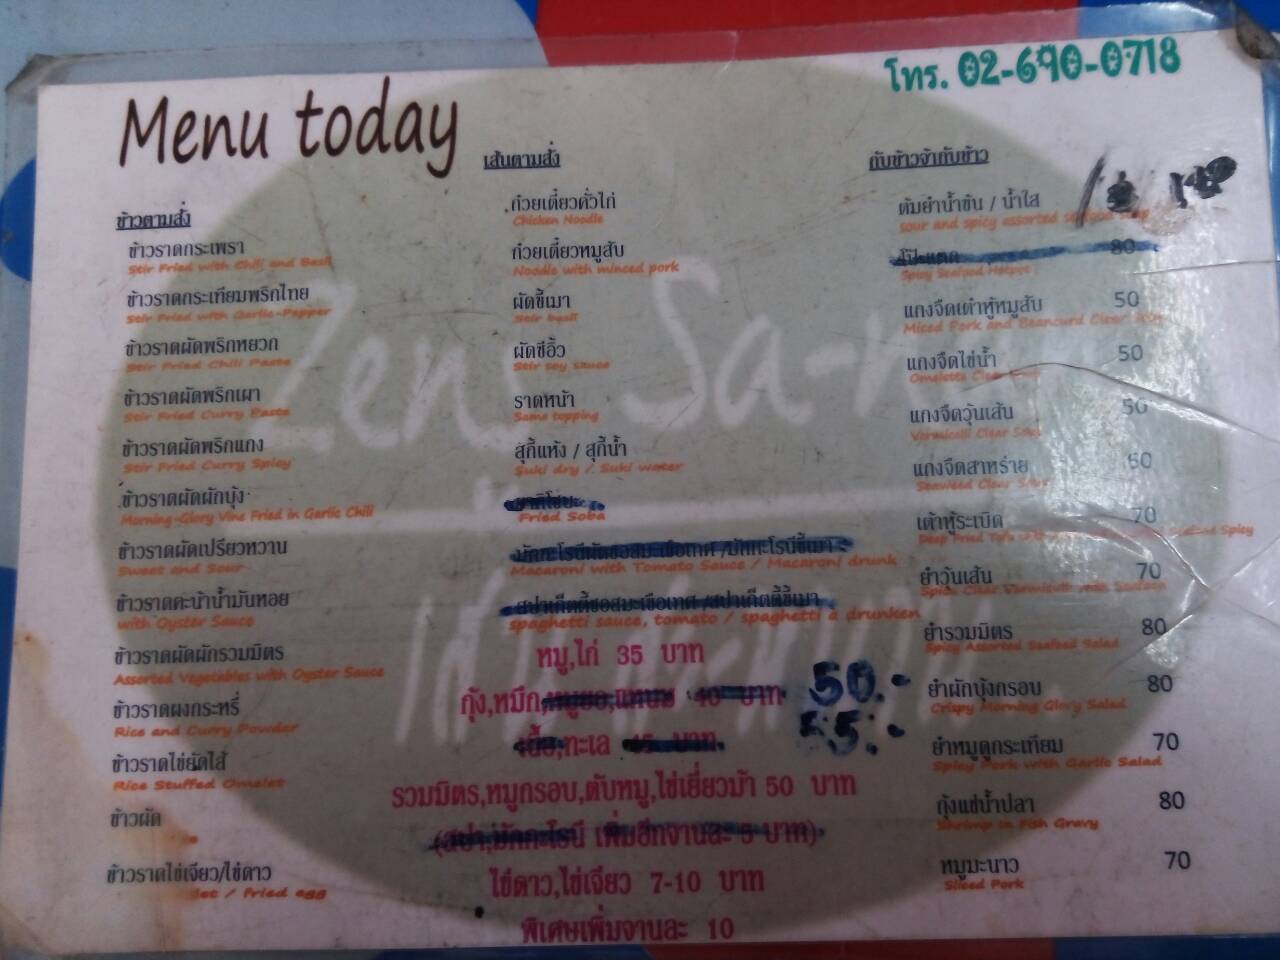 Menu today
โทร. 02-690-0718
ข้าวตามสั่ง
ข้าวราดกระเพรา
Stir Fried with Chili and Basil
ข้าวราดกระเทียมพริกไทย
Stir Fried with Garlic-Pepper
ข้าวราดผัดพริกหยวก
Stir Fried Chili Paste
ข้าวราดผัดพริกเผา
Stir Fried Curry Paste
ข้าวราดผัดพริกแกง
Stir Fried Curry Spicy
ข้าวราดผัดผักบุ้ง
Morning-Glory Vine Fried in Garlic Chili
ข้าวราดผัดเปรียวหวาน
Sweet and Sour
ข้าวราดคะน้าน้ำมันหอย
with Oyster Sauce
ข้าวราดผัดผักรวมมิตร
Assorted Vegetables with Oyster Sauce
ข้าวราดผงกระหรี่
Rice and Curry Powder
ข้าวราดไข่ยัดไส้
Rice Stuffed Omelet
ข้าวผัด
ข้าวราดไข่เจียว/ไข่ดาว
/ fried egg
เส้นตามสั่ง
ก๋วยเตี๋ยวคั่วไก่
Chicken Noodle
ก๋วยเตี๋ยวหมูสับ
Noodle with minced pork
ผัดขี้เมา
Stir basil
ผัดซีอิ้ว
Stir soy sauce
ราดหน้า
Same topping
สุกี้แห้ง / สุกี้น้ำ
Suki dry / Suki water
Fried Soba
มักกะโรนีผัดซอสมะเขือเทศ /มักกะโรนีขี้เมา
Macaroni with Tomato Sauce / Macaroni drunk
สปาเก็ตตี้ซอสมะเขือเทศ /สปาเก็ตตี้ขี้เมา
spaghetti sauce, tomato / spaghetti a drunken
หมู,ไก่ 35 บาท
กุ้ง,หมึก,หมูยอ,แหนม 40 บาท 50.-
ทะเล 45 บาท 55.-
รวมมิตร,หมูกรอบ,ตับหมู,ไข่เยี่ยวม้า 50 บาท
(สปา,มักกะโรนี เพิ่มอีกจานละ 5 บาท)
ไข่ดาว,ไข่เจียว 7-10 บาท
พิเศษเพิ่มจานละ 10
กับข้าวจ้ากับข้าว
ต้มยำน้ำข้น / น้ำใส
sour and spicy assorted
โป๊ะแตก 80
Spicy Seafood Hotpot
แกงจืดเต้าหู้หมูสับ 50
Miced Pork and Beancurd Clear Soup
แกงจืดไข่น้ำ 50
Omelette Clear
แกงจืดวุ้นเส้น 50
Vermicelli Clear Soup
แกงจืดสาหร่าย 50
Seaweed Clear Soup
เต้าหู้ระเบิด 70
Deep Fried Tofu Spicy
ยำวุ้นเส้น 70
ยำรวมมิตร 80
Spicy Assorted Seafood Salad
ยำผักบุ้งกรอบ 80
Crispy Morning Glory Salad
ยำหมูดูกระเทียม 70
Spicy Pork with Garlic Salad
กุ้งแช่น้ำปลา 80
Shrimp in Fish Gravy
หมูมะนาว 70
Sliced Pork